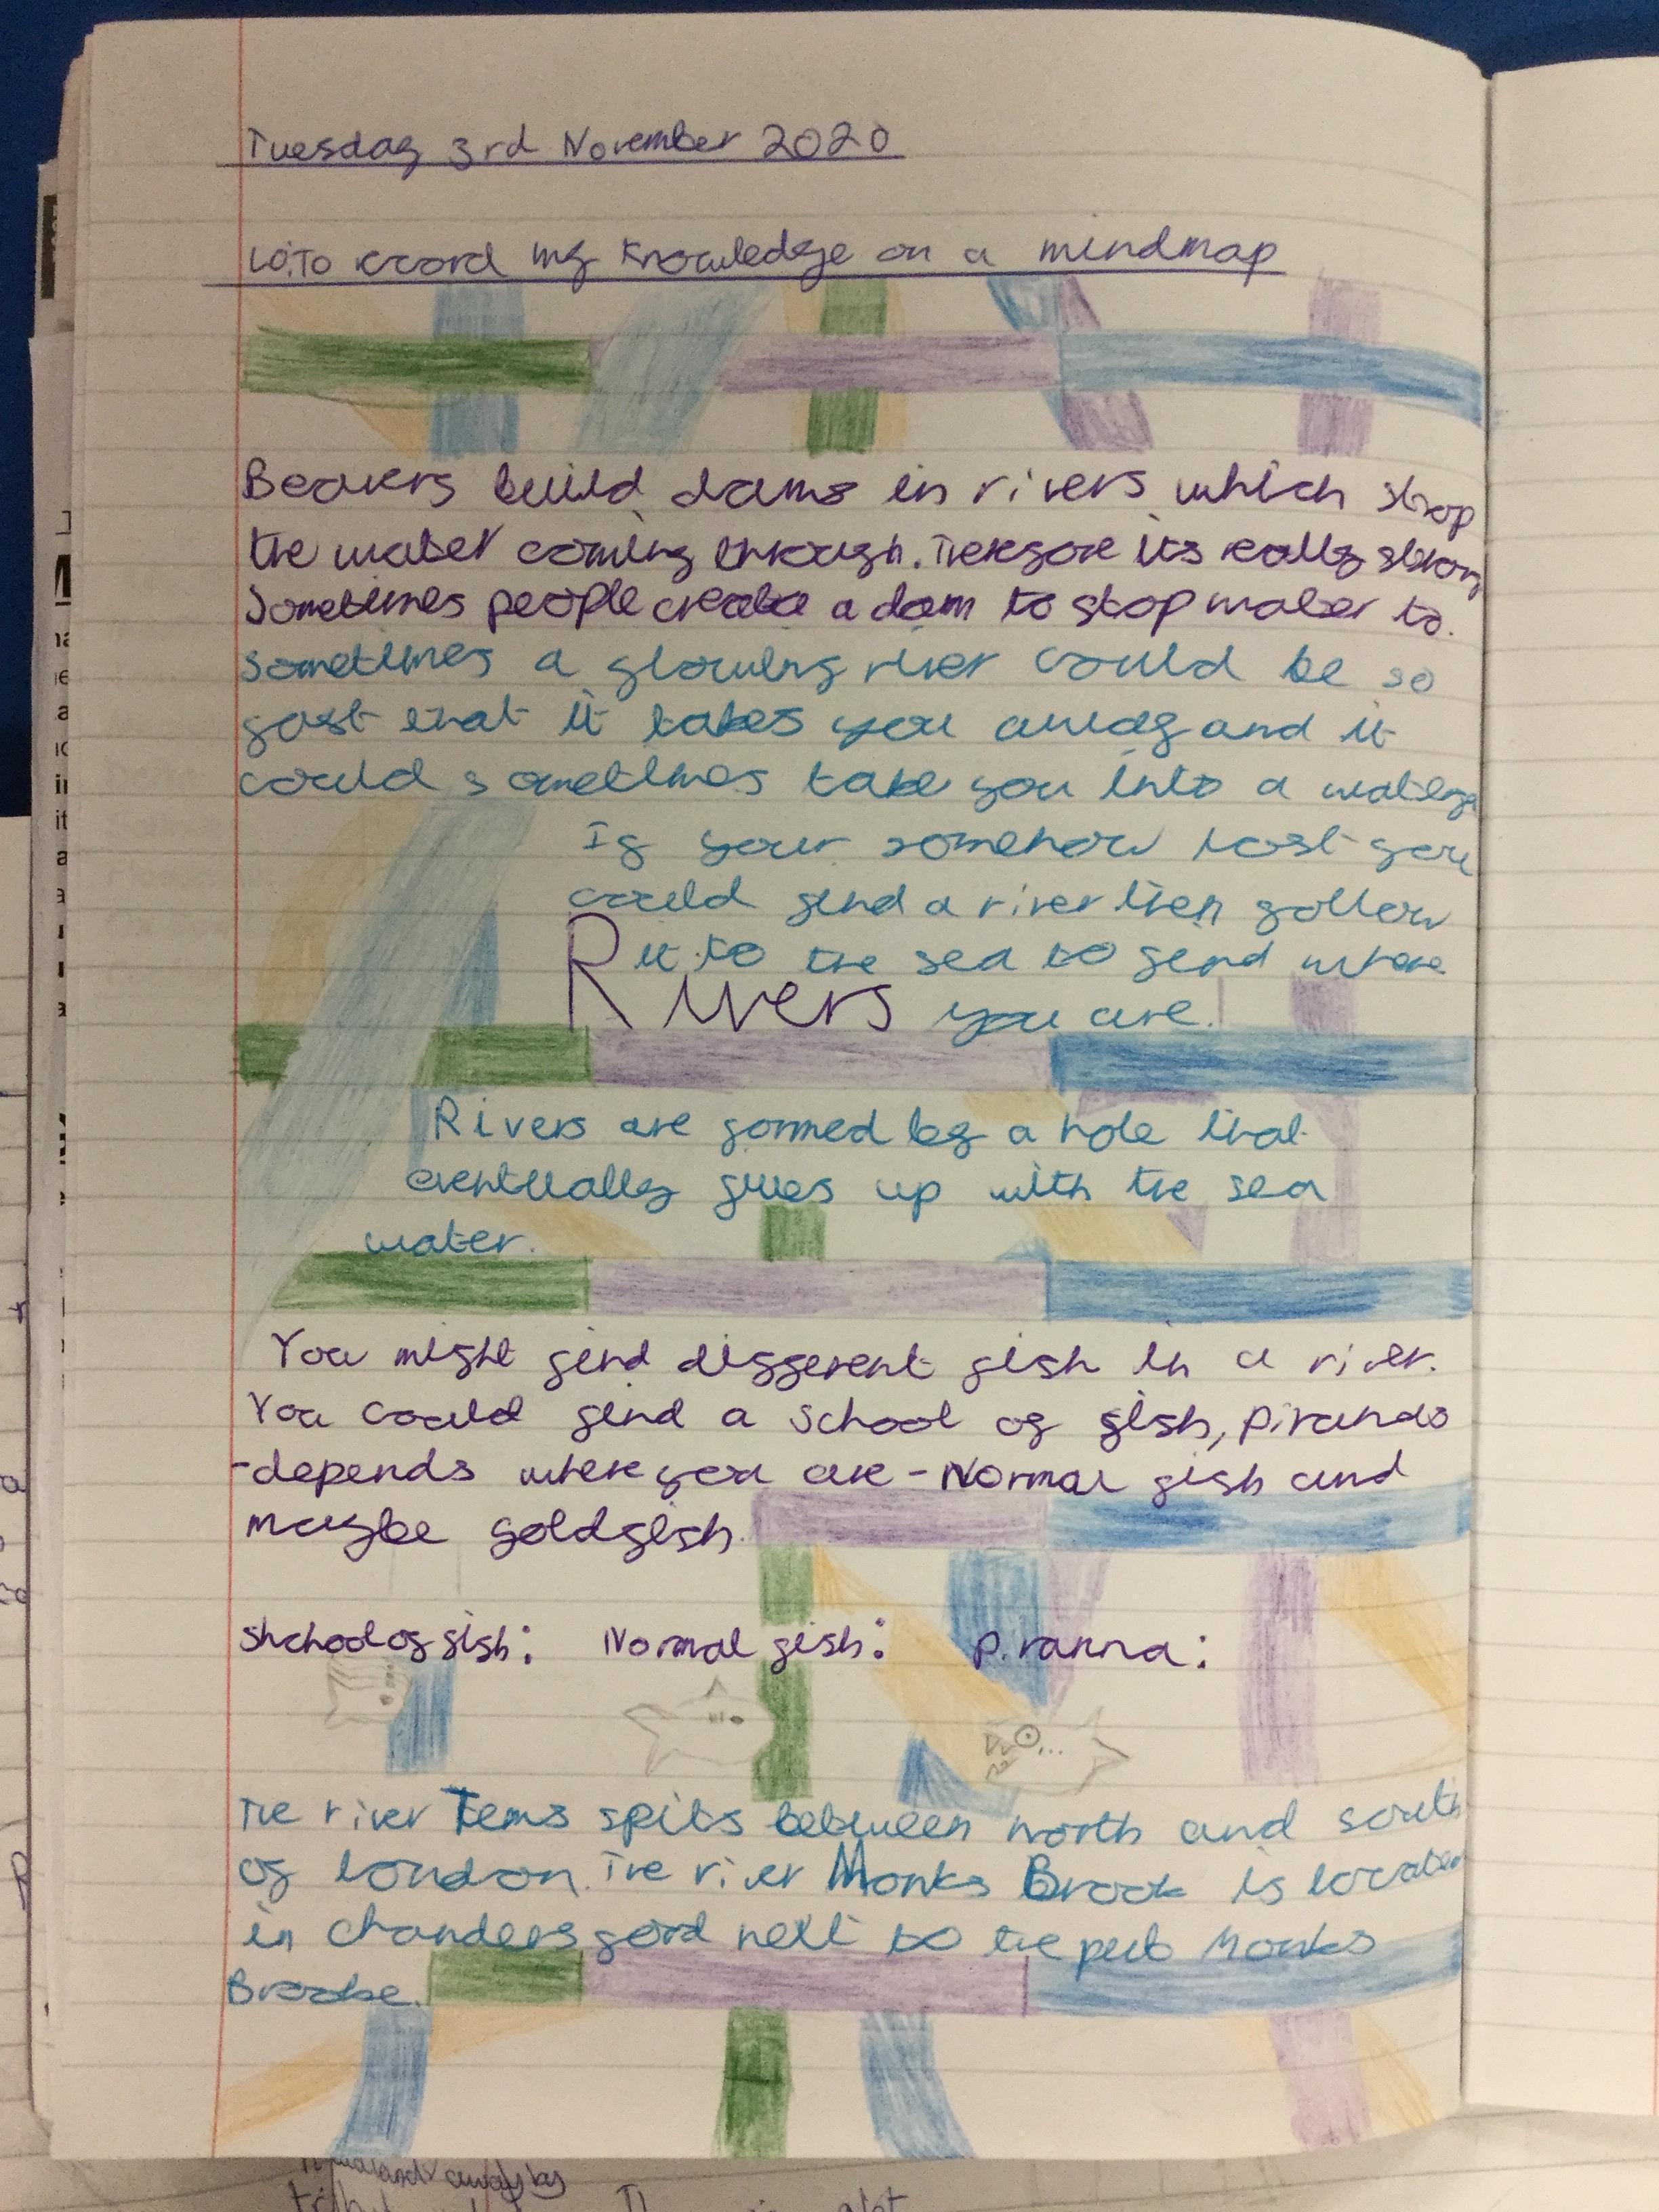 Tuesday 3rd November 2020
LO:To record my knowledge on a mindmap
Beavers build dams in rivers which stop
the water coming through. Therefore its really strong
Sometimes people create a dam to stop water to.
Sometimes a flowing river could be so
fast that it takes you away and it
could sometimes take you into a
If your somehow lost you
could find a river then follow
it to the sea to find where
Rivers you are.
Rivers are formed by a hole that
eventually fills up with the sea
water.
You might find different fish in a river.
You could find a school of fish,
-depends where you are - Normal fish and
maybe goldfish.
Shchool of fish: Normal fish: piranna:
The river Tems spits between north and south
of london. The river Monks Brook is located
in chandlers ford next to the pub Monks
Brooke.